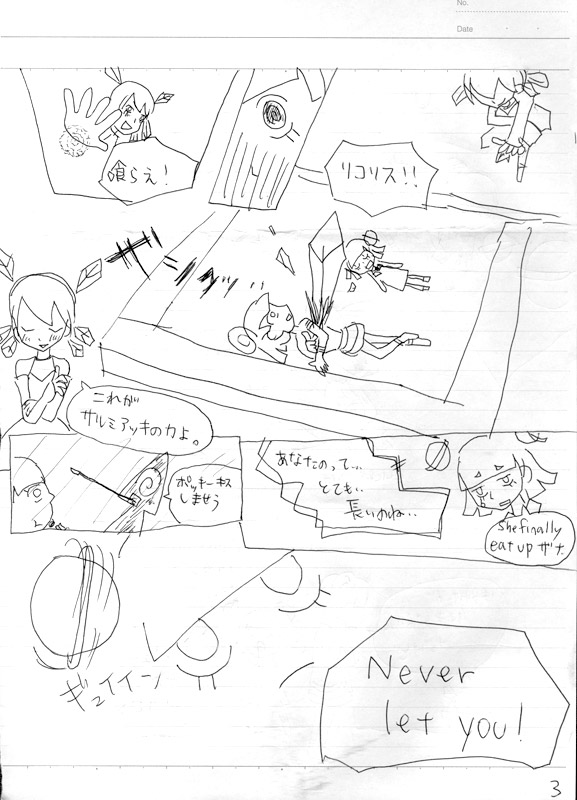 No.
Date
喰らえ!
リコリス!!
これが
サルミアッキの力よ。
ポッキーキス
しませう
あなたのって…
とても…
長いのね…
she finally
eat up ザナ
ギュイイン
Never
let you!
3